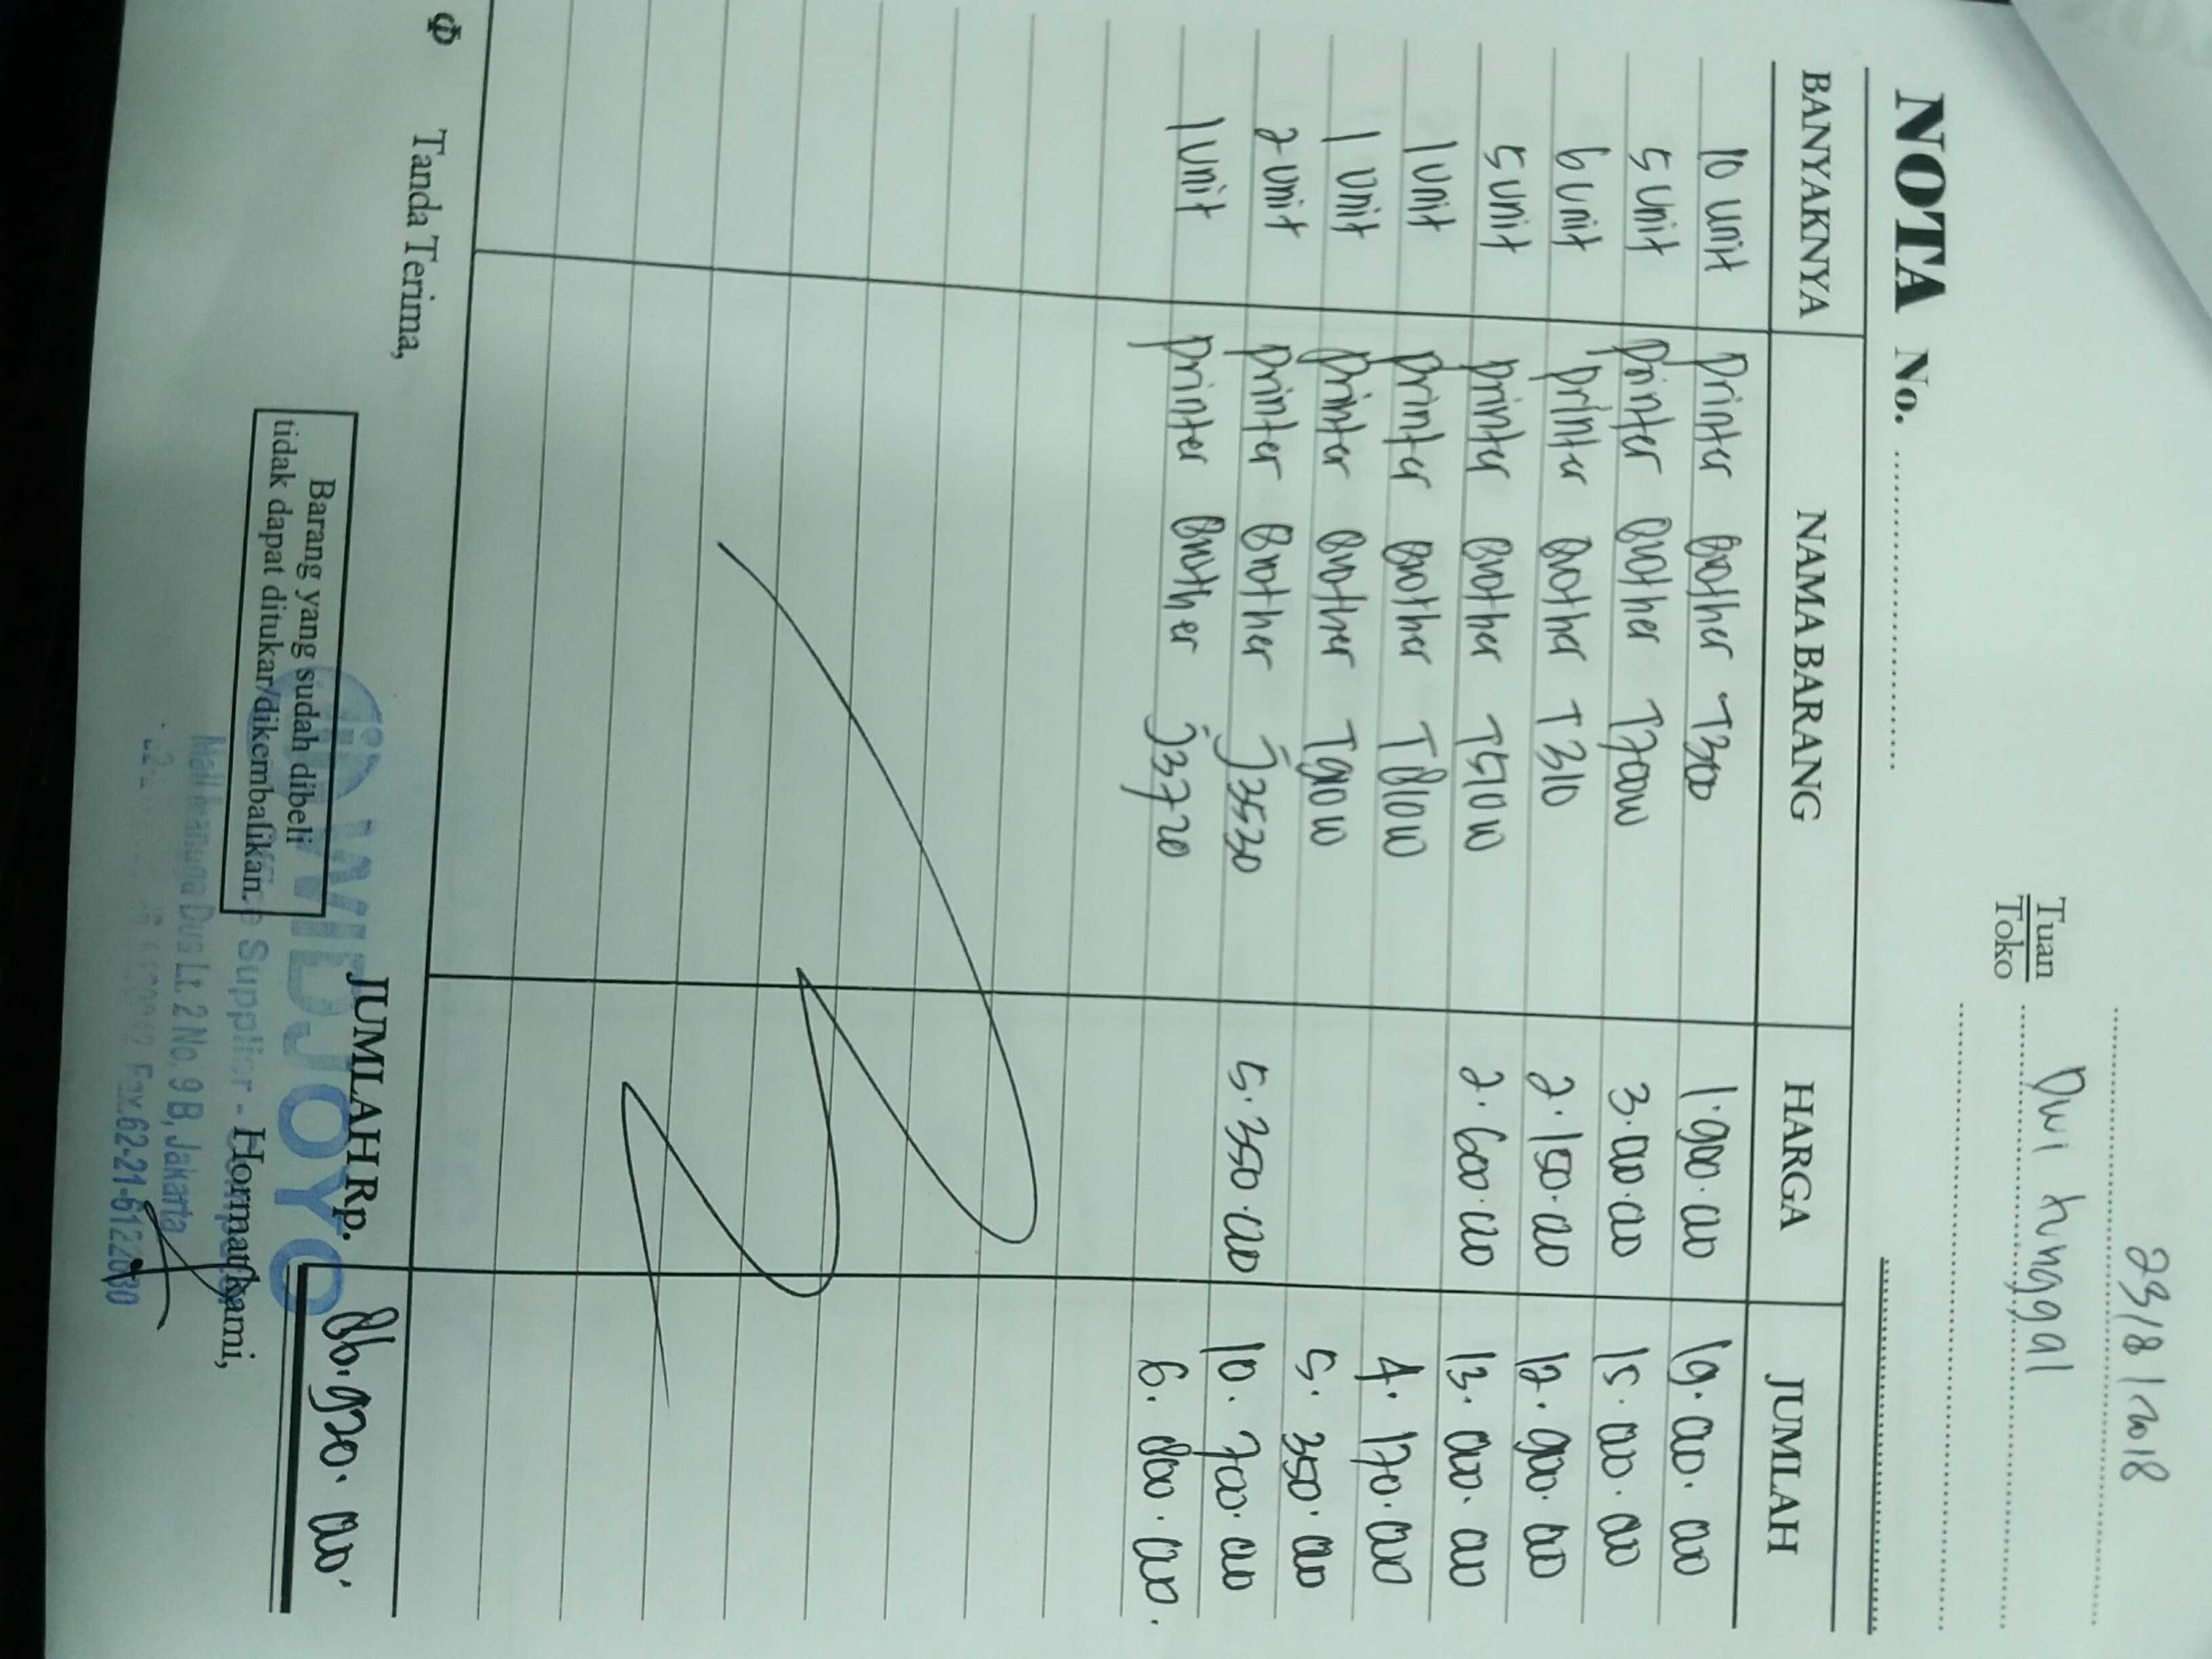 23/8/2018
Tuan
Toko
Dwi tunggal
NOTA No.
BANYAKNYA NAMA BARANG HARGA JUMLAH
10 unit printer Brother T300 1.900.000 19.000.000
5 unit printer Brother T700W 3.000.000 15.000.000
6 unit printer Brother T310 2.150.000 12.900.000
5 unit printer Brother T510W 2.600.000 13.000.000
1 unit printer Brother T810W 4.170.000
1 unit printer Brother T910W 5.350.000
2 unit printer Brother J3530 5.350.000 10.700.000
1 unit printer Brother J3720 6.800.000.
JUMLAH Rp. 86.920.000.
Φ Tanda Terima,
Barang yang sudah dibeli
tidak dapat ditukar/dikembalikan.
Hormat kami,
WIDJOYO
Office Supplier -
Mall Mangga Dua Lt. 2 No. 9 B, Jakarta
Fax.62-21-6122030